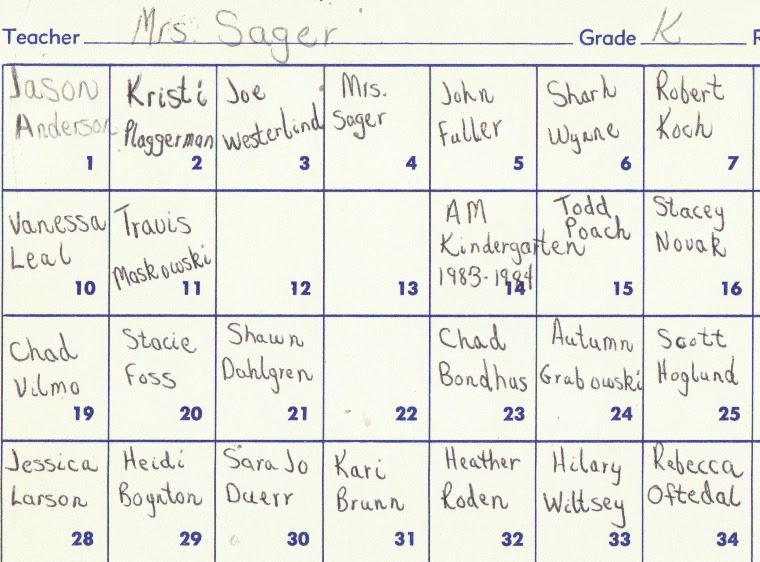 Teacher Mrs. Sager Grade K
Jason
Anderson
1
Kristi
Plaggerman
2
Joe
Westerlind
3
Mrs.
Sager
4
John
Fuller
5
Shark
Wynne
6
Robert
Koch
7
Vanessa
Leal
10
Travis
Maskowski
11
12
13
AM
Kindergarten
1983-1984
14
Todd
Poach
15
Stacey
Novak
16
Chad
Vilmo
19
Stacie
Foss
20
Shawn
Dahlgren
21
22
Chad
Bondhus
23
Autumn
Grabowski
24
Scott
Hoglund
25
Jessica
Larson
28
Heidi
Boynton
29
Sara Jo
Duerr
30
Kari
Brunn
31
Heather
Roden
32
Hilary
Wiltsey
33
Rebecca
Oftedal
34